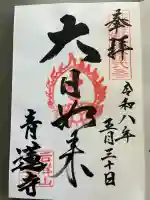 奉拝
令和八年
五月三十日
大日如来
青蓮寺